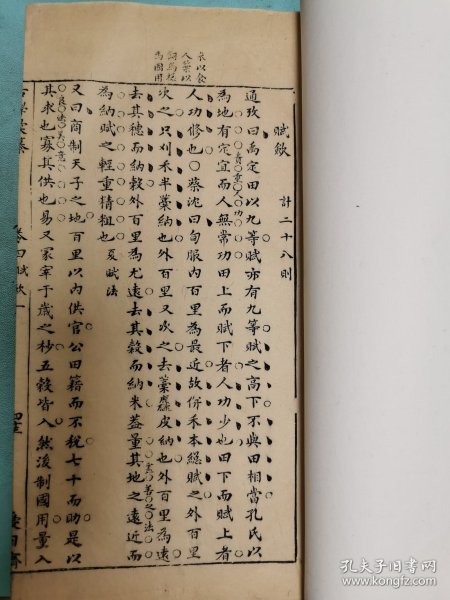 衣以食
人藁以
飼馬總
爲國用
賦斂
計二十八則
通攷曰禹定田以九等賦亦有九等賦之高下不與田相當孔氏以
爲地有定宜而人無常功田上而賦下者人功少也田下而賦上者
人功修也○蔡沈曰甸服內百里爲最近故倂禾本總賦之外百里
次之只刈禾半藁納也外百里又次之去藁麤皮納也外百里爲遠
去其穗而納穀外百里爲尤遠去其穀而納米蓋量其地之遠近而
爲納賦之輕重精粗也
夏賦法
又曰商制天子之地百里以內供官公田籍而不稅七十而助是以
其求也寡其供也易又冢宰于歲之杪五穀皆入然後制國用量入
卷四賦斂一
孔夫子旧书网
www.kongfz.com